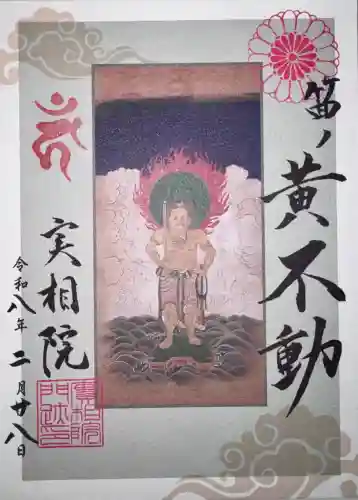 笛ノ黄不動
実相院
令和八年 二月廿八日
實相院
門跡印